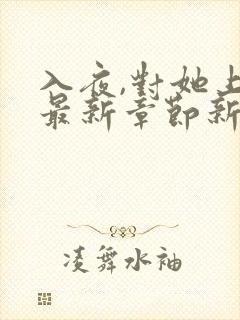 入夜,對她上
最新章節新
凌舞水袖